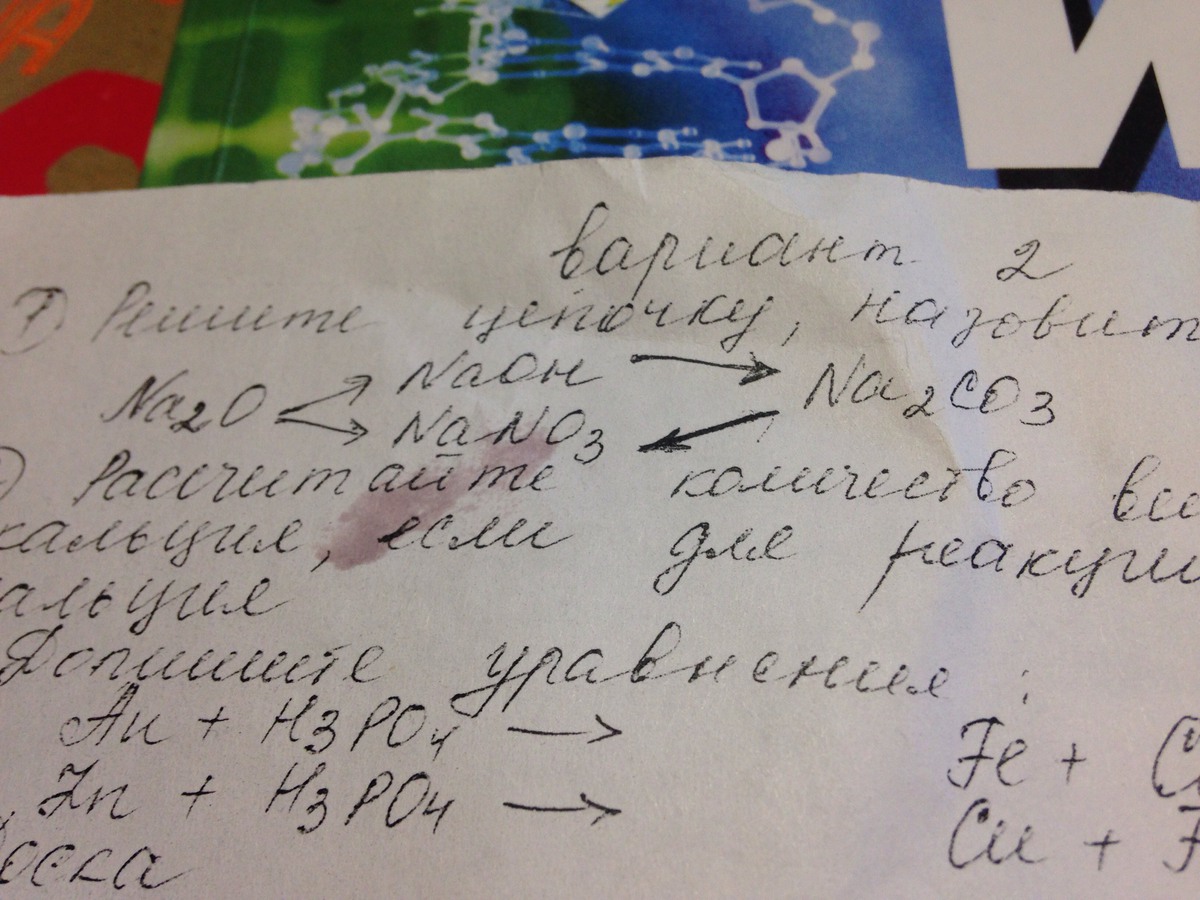 вариант 2
1) Решите цепочку, назовит
NaOH → Na2CO3
Na2O
NaNO3
Рассчитайте количество ве
кальция, если для реакции
альция
Допишите уравнения:
Au + H3PO4 → Fe + C
Zn + H3PO4 → Cu + F
оска
W